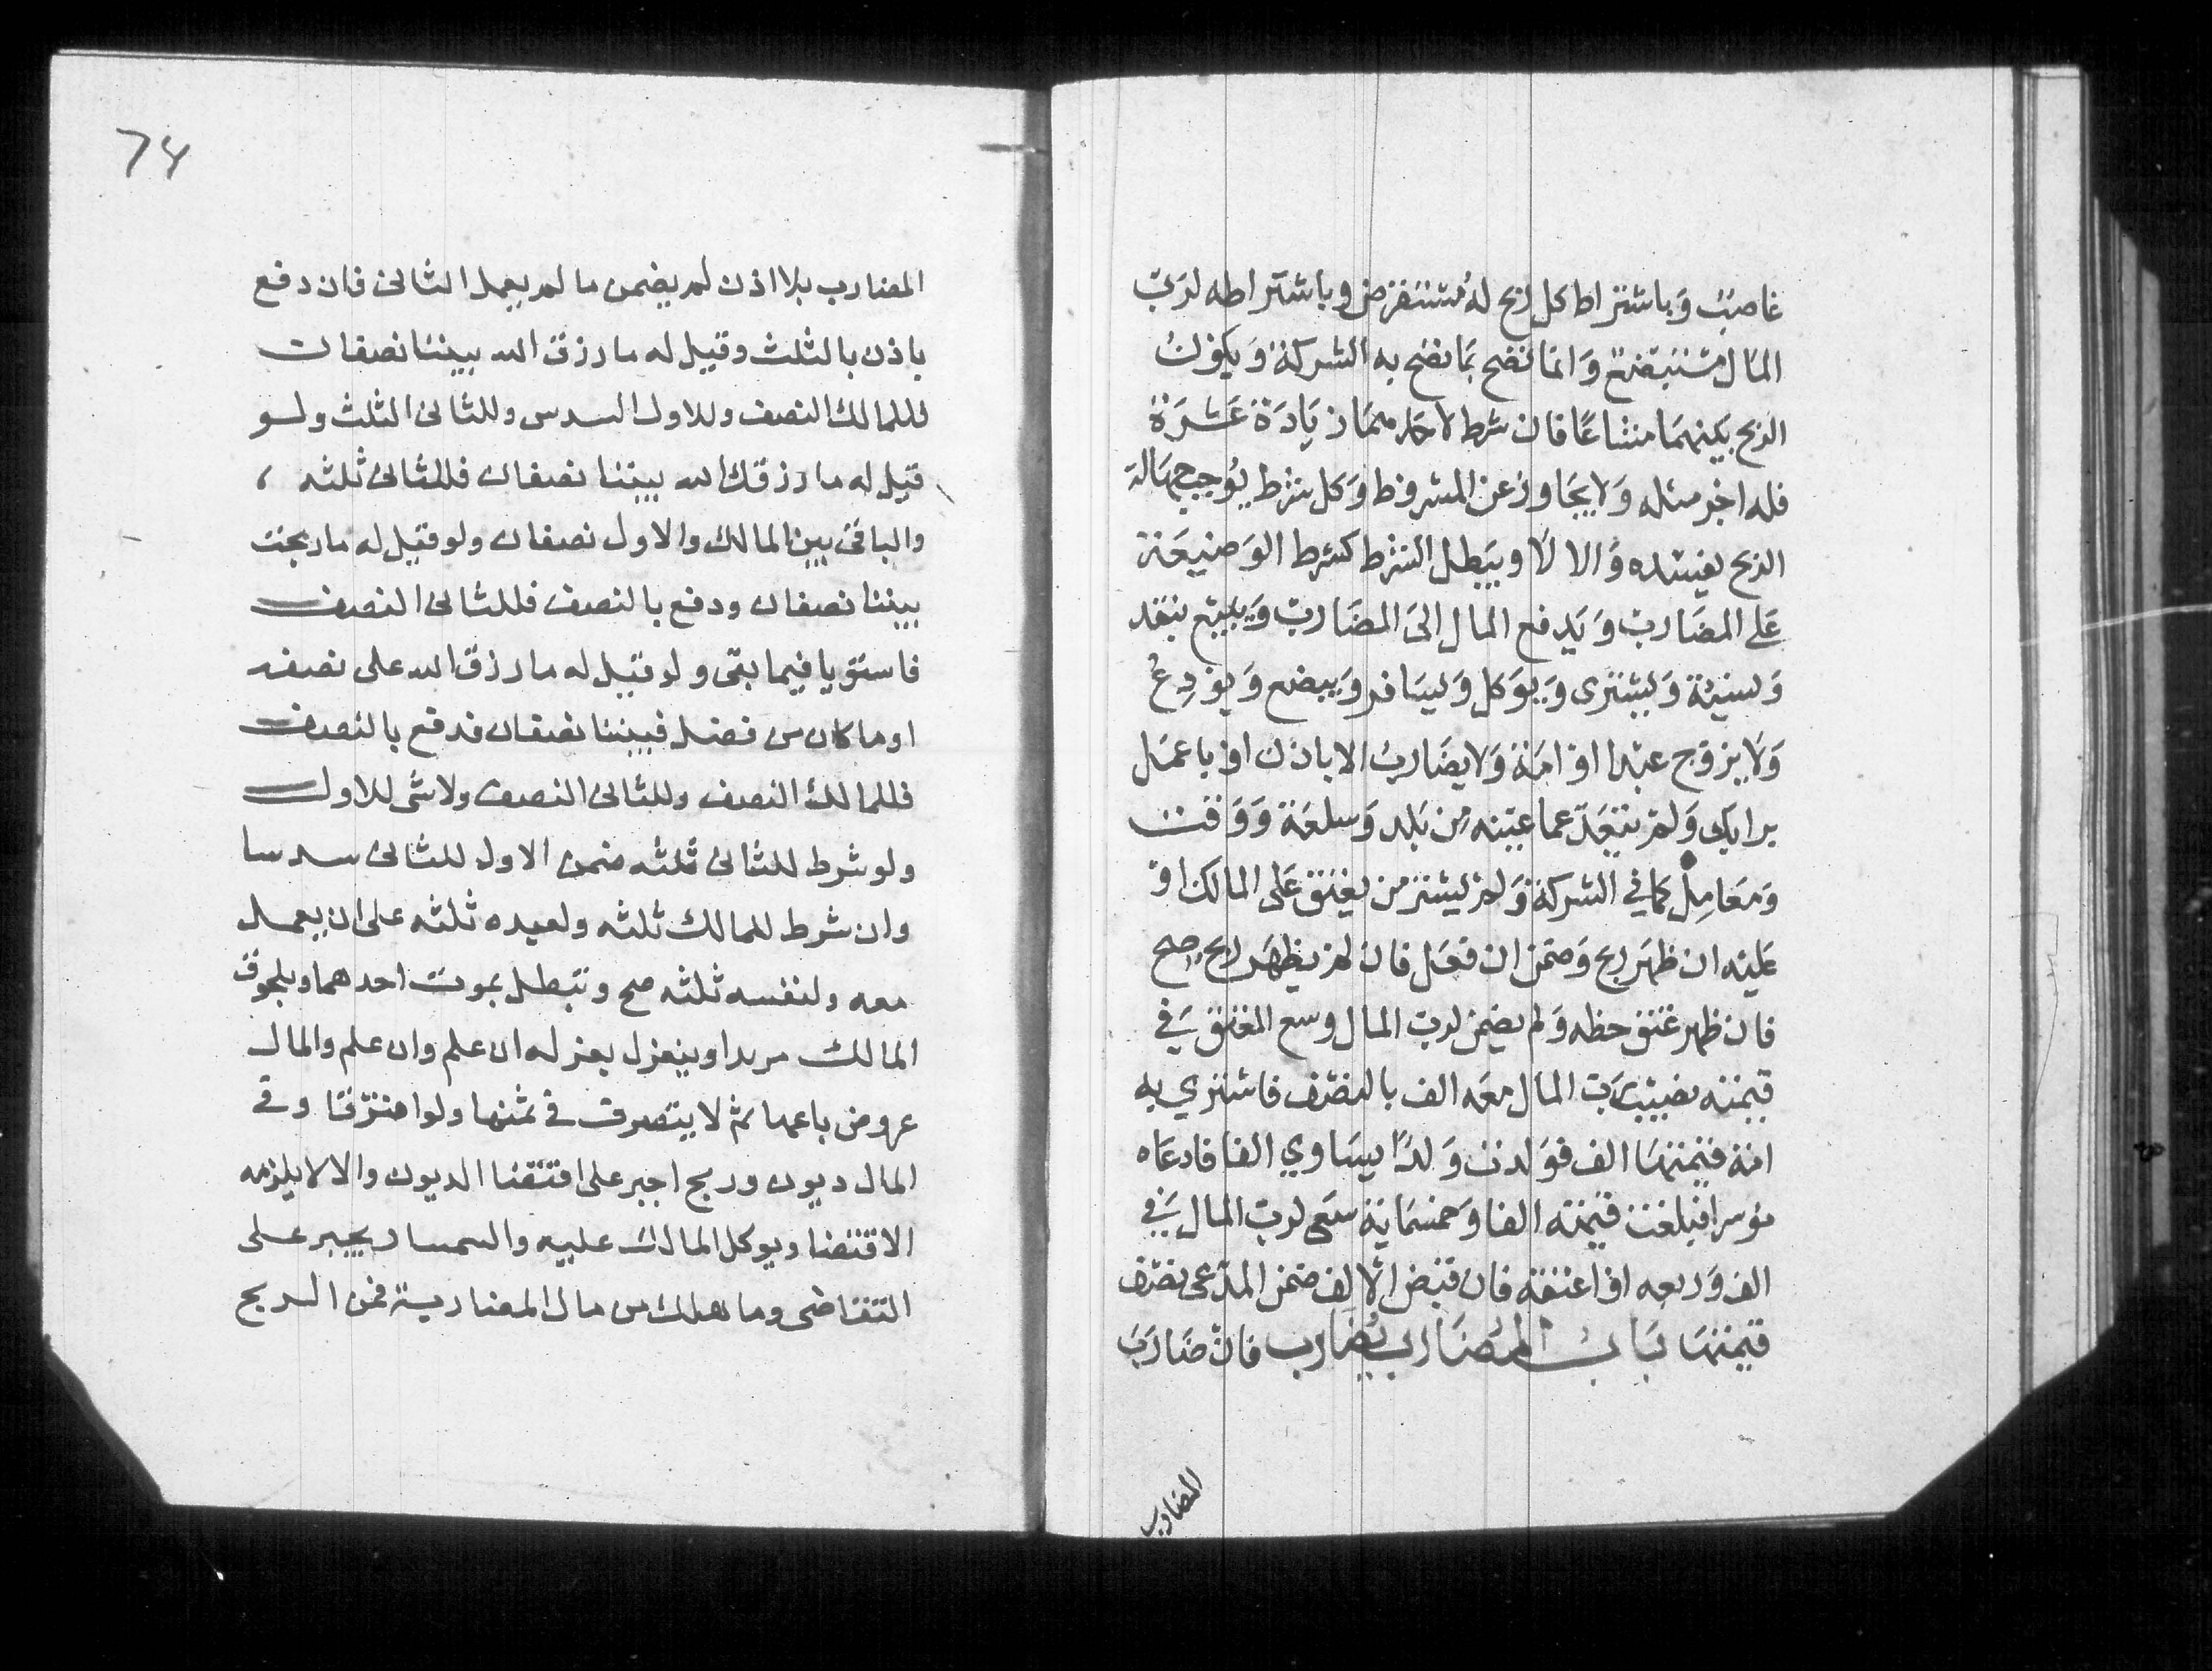 غاصبٌ وَباشتراط كل ربح لهُ مُستقرض وباشتراطه لربّ
المال مستبضعٌ وَانما تصح بما تصح به الشركة وَيكون
الربح بينهمَا مشاعًا فان شرط لاحدهمَا زيَادَة عَشَرَة
فله اجر مثله وَلا يجَاوز عن المشروط وَكل شرط يُوجب جهَالة
الربح يفسده وَالا لَا ويبَطل الشرط كشرط الوَضيعَة
عَلى المضَارب وَيَدفع المال الىَ المضَارب وَيبيع بنقد
وَنسيئة وَيشترى وَيوَكل وَيسَافر وَيبضع وَيودِعُ
وَلا يزوّج عبْدا اوْ امَة وَلا يضَارب الا باذن اوْ باعمَل
برايك وَلم يتعَدّ عما عيّنه مِن بَلد وَسلعَة وَوَقت
وَمعَامِل كما في الشركة وَلم يشتر من يعتق عَلى المالك اوْ
عليْه ان ظهَر ربح وَضمَن ان فعَل فان لم يظهَر ربح صح
فان ظهر عتق حظه وَلم يضمن لربّ المال وسع المعتق في
قيمته نصيب رَبّ المال معَه الف بالنصْف فاشتري به
امَة قيمتهَا الف فوَلدت وَلدًا يسَاوي الفا فادعَاه
موسرا فبلغت قيمته الفا وَخمسمَاية سَعى لربّ المال في
الف وَربعه اوْ اعتقه فان قبَض الالف ضمن المدّعى نصْف
قيمتهَا بَابُ المُضَارب يُضَارب فانْ ضَارَبَ
المضارب
74
المضارب بلا اذن لم يضمن ما لم يعمل الثانى فان دفع
باذن بالثلث وقيل له ما رزق الله بيننا نصفان
فللمالك النصف وللاول السدس وللثانى الثلث ولو
قيل له ما رزقك الله بيننا نصفان فللثانى ثلثه
والباقى بين المالك والاول نصفان ولو قيل له ما ربحت
بيننا نصفان ودفع بالنصف فللثانى النصف
فاستويا فيما بقى ولو قيل له ما رزق الله على نصفه
او ما كان من فضل فبيننا نصفان فدفع بالنصف
فللمالك النصف وللثانى النصف ولا شى للاول
ولو شرط للثانى ثلثه ضمن الاول للثانى سدسا
وان شرط للمالك ثلثه ولعبده ثلثه على ان يعمل
معه ولنفسه ثلثه صح وتبطل بموت احدهما وبلحوق
المالك مرتدا وينعزل بعزله ان علم وان علم والمال
عروض باعها ثم لا يتصرف فى ثمنها ولو افترقا وفى
المال ديون وربح اجبر على اقتضا الديون والا لا يلزمه
الاقتضا ويوكل المالك عليه والسمسار يجبر على
التقاضى وما هلك من مال المضاربة فمن الربح